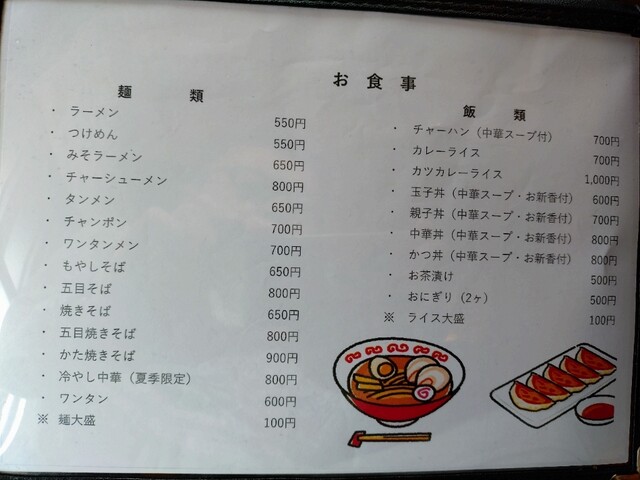 お食事
麺類
・ ラーメン 550円
・ つけめん 550円
・ みそラーメン 650円
・ チャーシューメン 800円
・ タンメン 650円
・ チャンポン 700円
・ ワンタンメン 700円
・ もやしそば 650円
・ 五目そば 800円
・ 焼きそば 650円
・ 五目焼きそば 800円
・ かた焼きそば 900円
・ 冷やし中華（夏季限定） 800円
・ ワンタン 600円
※ 麺大盛 100円
飯類
・ チャーハン（中華スープ付） 700円
・ カレーライス 700円
・ カツカレーライス 1,000円
・ 玉子丼（中華スープ・お新香付） 600円
・ 親子丼（中華スープ・お新香付） 700円
・ 中華丼（中華スープ・お新香付） 800円
・ かつ丼（中華スープ・お新香付） 800円
・ お茶漬け 500円
・ おにぎり（2ヶ） 500円
※ ライス大盛 100円